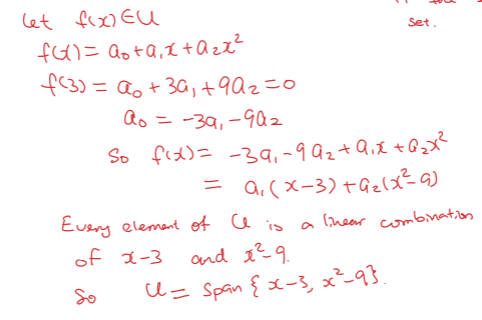 let f(x) ∈ U
set.
f(x) = a₀ + a₁x + a₂x²
f(3) = a₀ + 3a₁ + 9a₂ = 0
a₀ = -3a₁ - 9a₂
So f(x) = -3a₁ - 9a₂ + a₁x + a₂x²
= a₁(x-3) + a₂(x²-9)
Every element of U is a linear combination
of x-3 and x²-9.
So U = span { x-3, x²-9}.